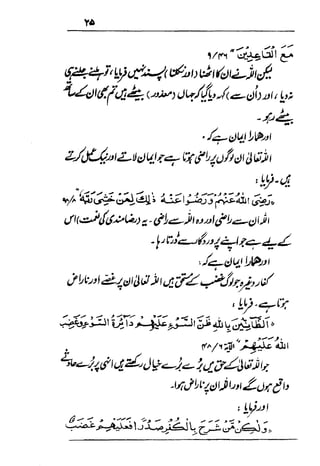 ۲۵
مَعَ الْقَاعِدِيْنَ" ۹/۴۶
لیکن اللہ نے ان کا اٹھنا (اور نکلنا) پسند نہیں فرمایا، تو ہلنے جلنے ہی
نہ دیا، اور (ان سے) کہہ دیا گیا کہ جہاں (معذور) بیٹھے ہیں تم بھی ان کے ساتھ
بیٹھے رہو۔
اور ہمارا ایمان ہے کہ:
اللہ تعالیٰ ان لوگوں پر راضی ہوتا ہے جو ایمان لاتے اور نیک عمل کرتے
ہیں۔ فرمایا:
"رَضِىَ اللهُ عَنْهُمْ وَرَضُوْا عَنْهُ ذٰلِكَ لِمَنْ خَشِىَ رَبَّهٗ" ۹۸/۸
اللہ ان سے راضی اور وہ اللہ سے راضی۔ یہ (رضامندی کی نعمت) اس
کے لیے ہے جو اپنے پروردگار سے ڈرتا رہا۔
اور ہمارا ایمان ہے کہ:
کفار وغیرہ جو لوگ غضب کے مستحق ہیں اللہ تعالیٰ ان پر غصے اور ناراض
ہوتا ہے۔ فرمایا:
"الظَّانِّيْنَ بِاللهِ ظَنَّ السَّوْءِ عَلَيْهِمْ دَآئِرَةُ السَّوْءِ وَغَضِبَ
اللهُ عَلَيْهِمْ" الآیۃ ۴۸/۶
جو اللہ تعالیٰ کے حق میں بُرے بُرے خیال رکھتے ہیں انہی پر بُرے حادثے
واقع ہوں گے اور اللہ ان پر ناراض ہوا۔
اور فرمایا:
"وَلٰكِنْ مَّنْ شَرَحَ بِالْكُفْرِ صَدْرًا فَعَلَيْهِمْ غَضَبٌ